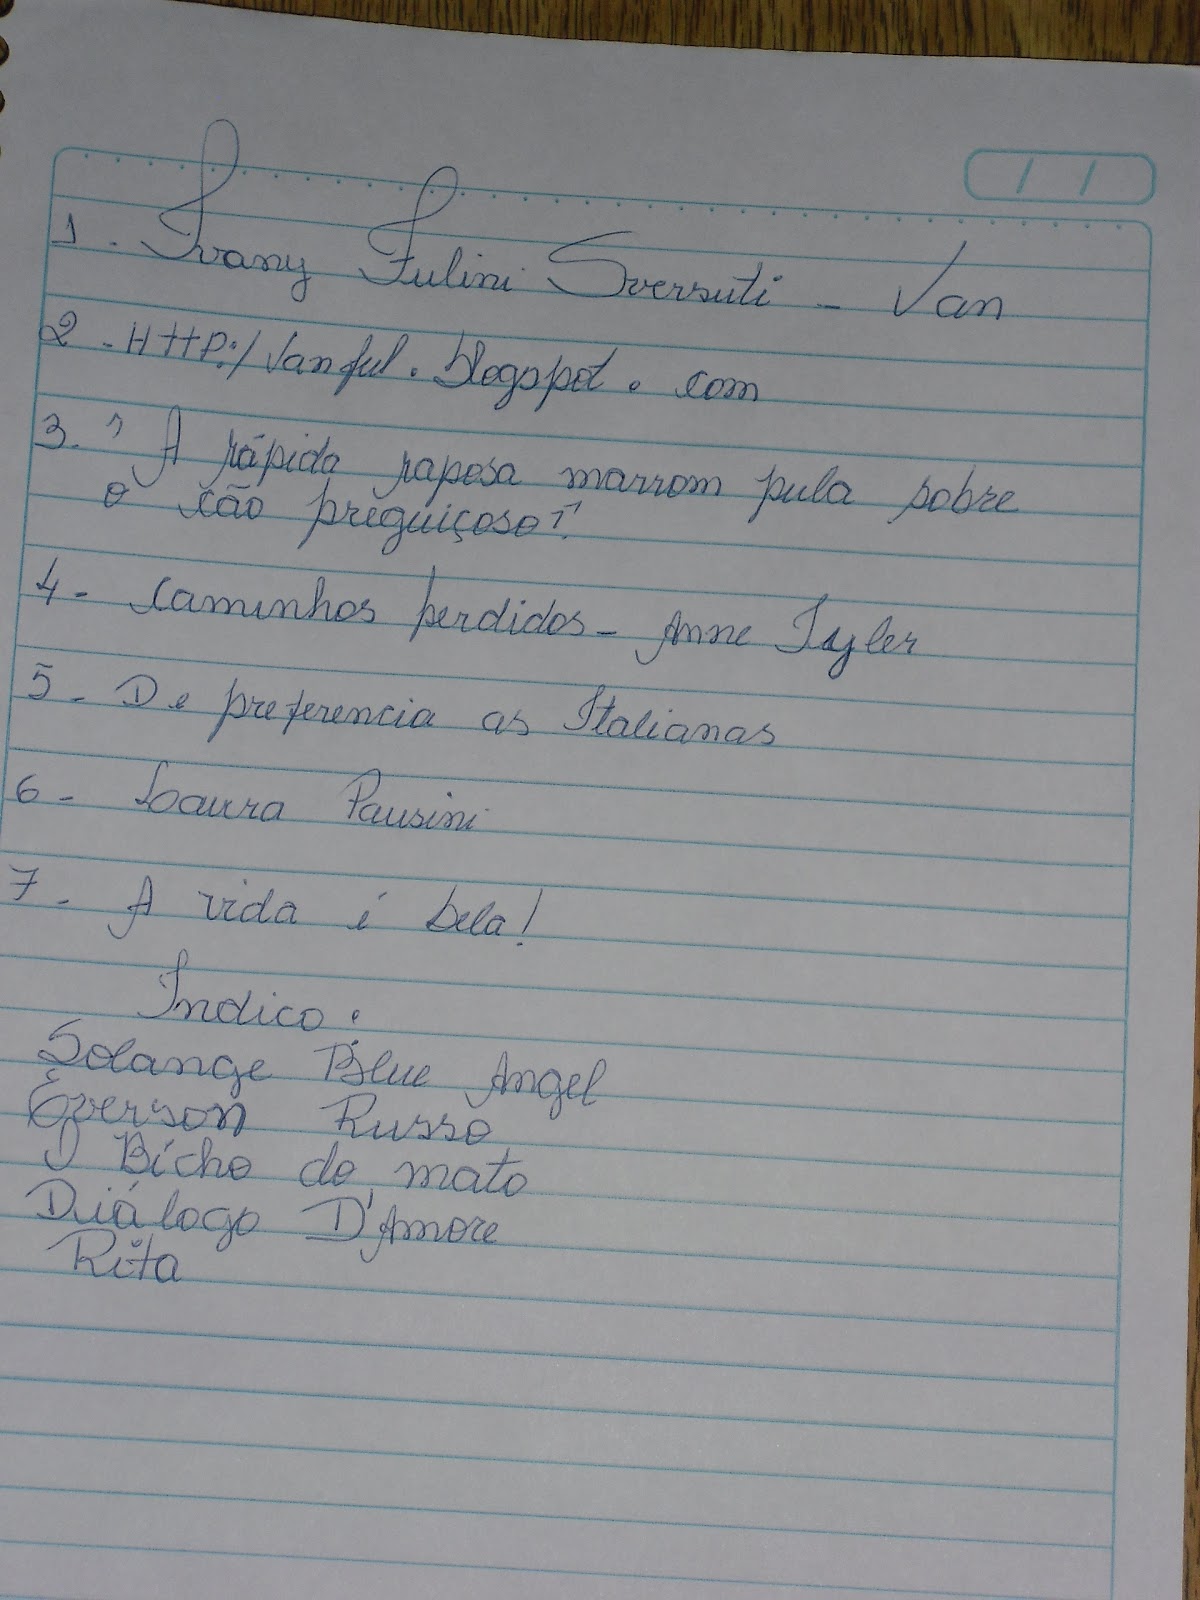 1 - Ivany Fulini Sversuti - Van
2 - HTTP:/Vanful.blogspot.com
3. "A rápida raposa marrom pula sobre
o cão preguiçoso".
4 - Caminhos perdidos - Anne Tyler
5 - De preferencia as Italianas
6 - Laura Pausini
7 - A vida é bela!
Indico:
Solange Blue Angel
Éverson Russo
O Bicho do mato
Diálogo D'Amore
Rita